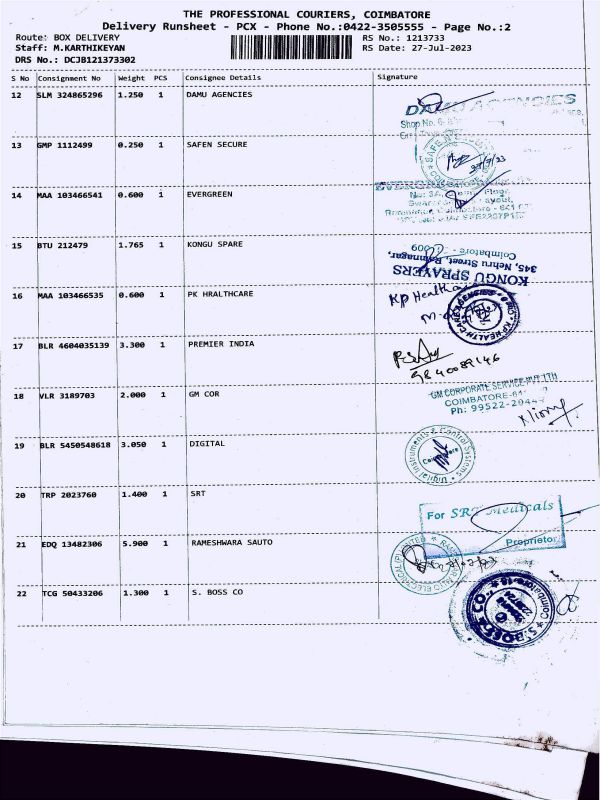 THE PROFESSIONAL COURIERS, COIMBATORE
Delivery Runsheet - PCX - Phone No.:0422-3505555 - Page No.:2
Route: BOX DELIVERY RS No.: 1213733
Staff: M.KARTHIKEYAN RS Date: 27-Jul-2023
DRS No.: DCJB121373302
S No Consignment No Weight PCS Consignee Details Signature
12 SLM 324865296 1.250 1 DAMU AGENCIES
DAMU AGENCIES
Shop No.
13 GMP 1112499 0.250 1 SAFEN SECURE
14 MAA 103466541 0.600 1 EVERGREEN
15 BTU 212479 1.765 1 KONGU SPARE
KONGU SPRAYERS
345, Nehru Street, Ramnagar,
Coimbatore -
16 MAA 103466535 0.600 1 PK HRALTHCARE
KP Health
17 BLR 4604035139 3.300 1 PREMIER INDIA
9840089146
18 VLR 3189703 2.000 1 GM COR
GM CORPORATE SERVICE PVT LTD
COIMBATORE
Ph: 99522-
19 BLR 5450548618 3.050 1 DIGITAL
Digital Instruments & Control Systems
Coimbatore
20 TRP 2023760 1.400 1 SRT
For SRT Medicals
Proprietor
21 EDQ 13482306 5.900 1 RAMESHWARA SAUTO
22 TCG 50433206 1.300 1 S. BOSS CO